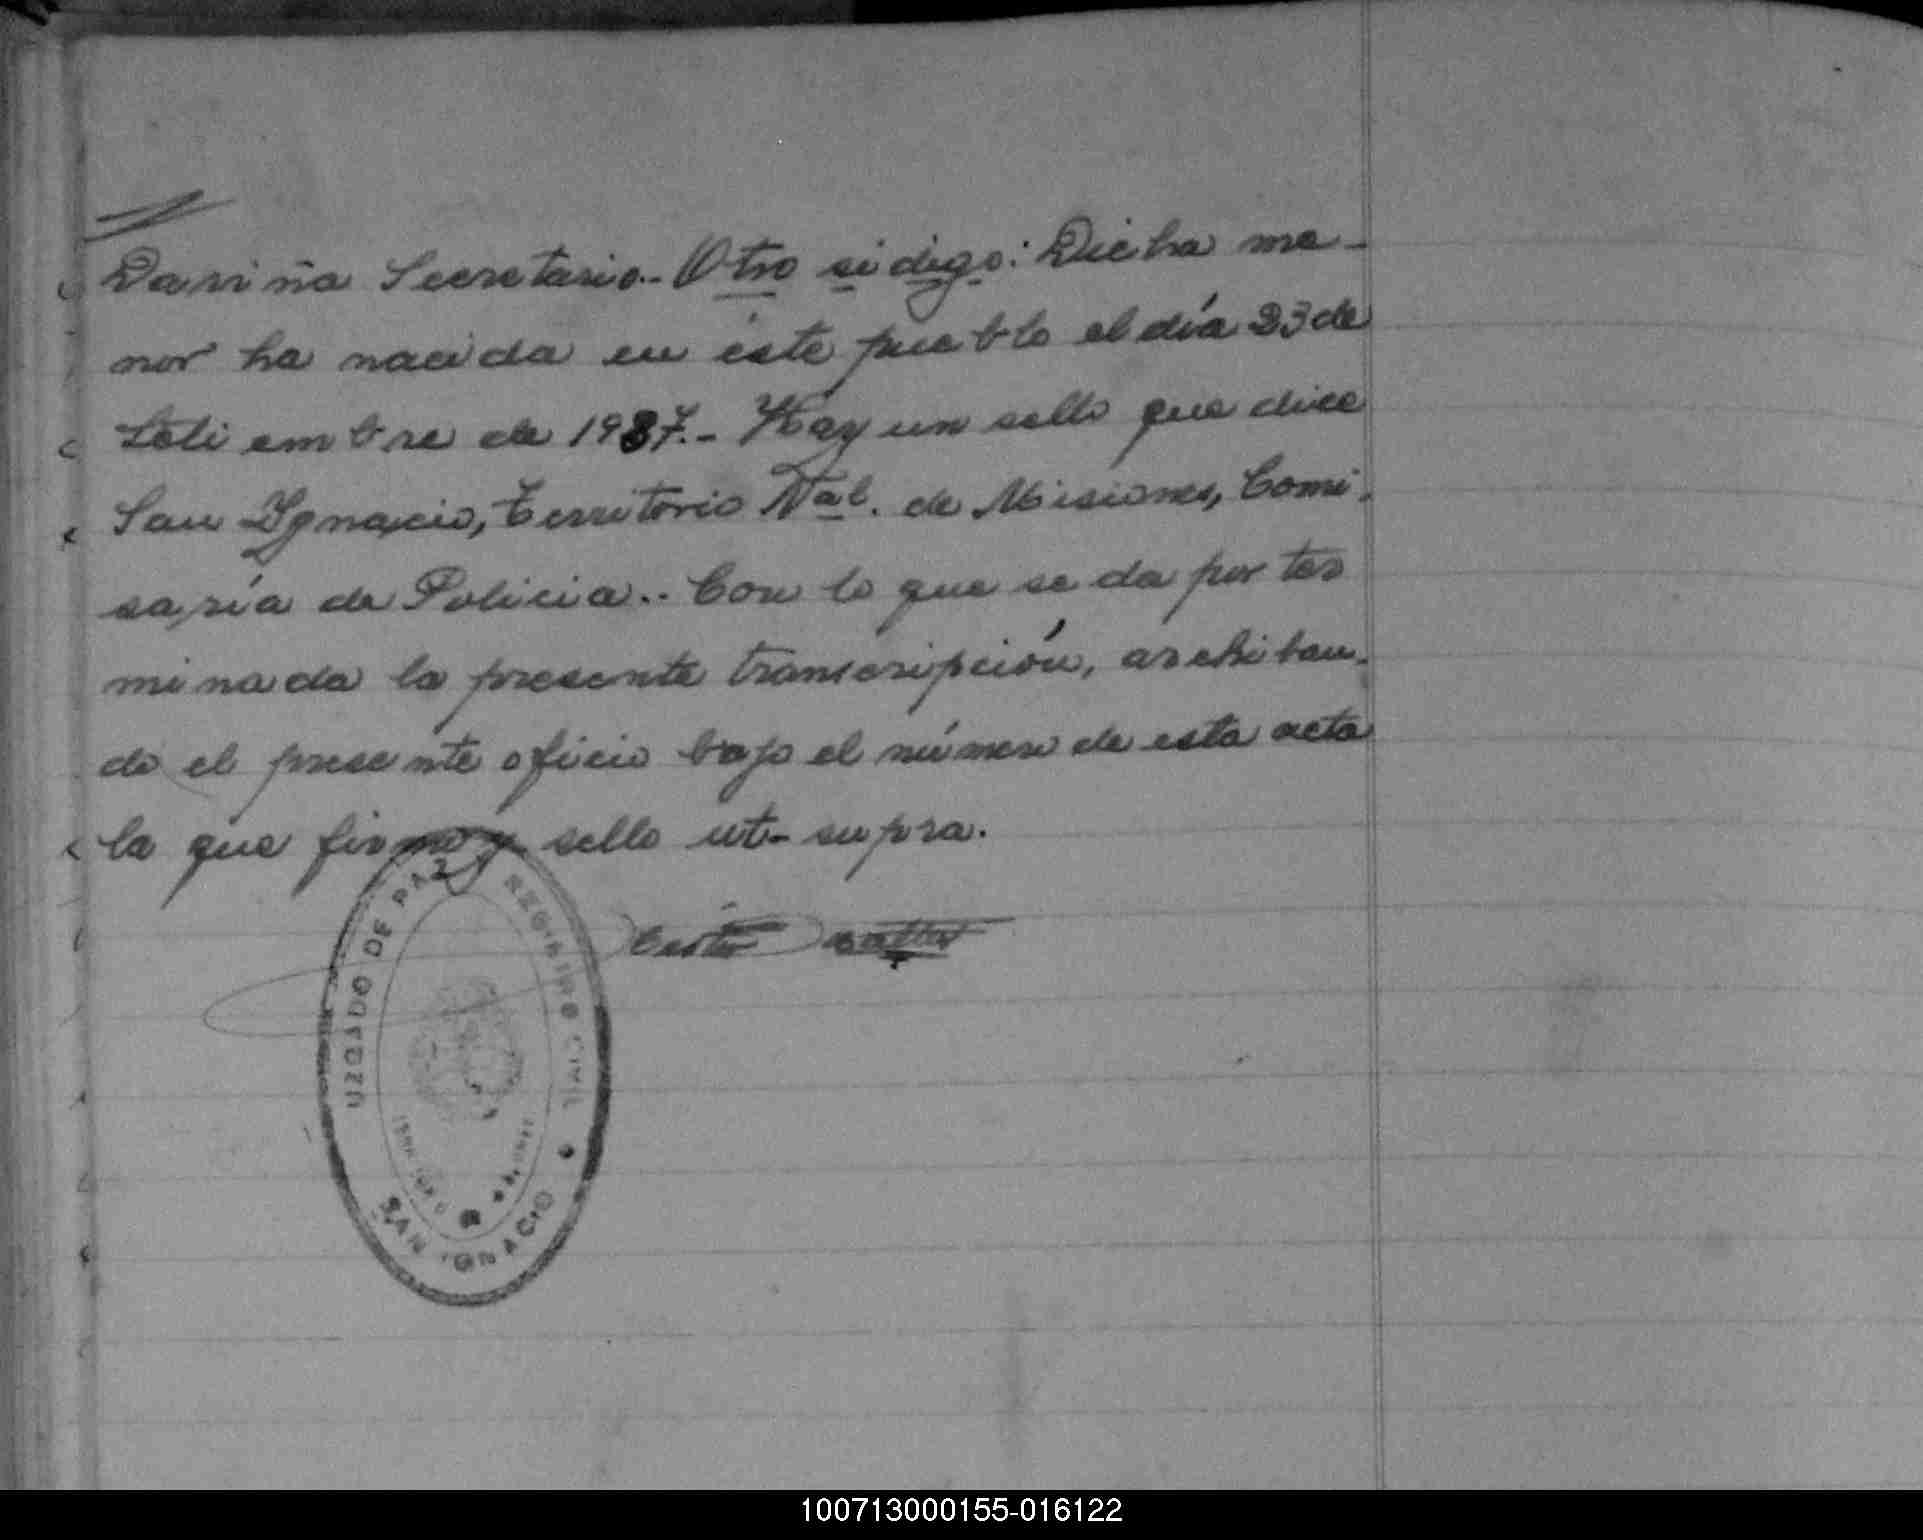 Dariña Secretario.- Otro si digo: Dicha me-
nor ha nacida en éste pueblo el día 23 de
Setiembre de 1937.- Hay un sello que dice
San Ygnacio, Territorio Nal. de Misiones, Comi-
saría de Policia.. Con lo que se da por ter
minada la presente transcripción, archivan-
do el presente oficio bajo el número de esta acta
la que firmo y sello ut-supra.
UZGADO DE PAZ Y REGISTRO CIVIL
SAN IGNACIO
100713000155-016122